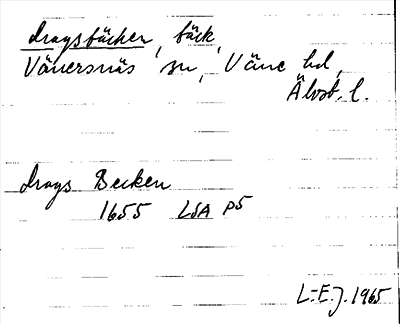 dragsbäcken, bäck,
Vänersnäs sn, Väne hd,
Älvsb. l.
drags Becken
1655 LSA P5
L-E. J. 1965